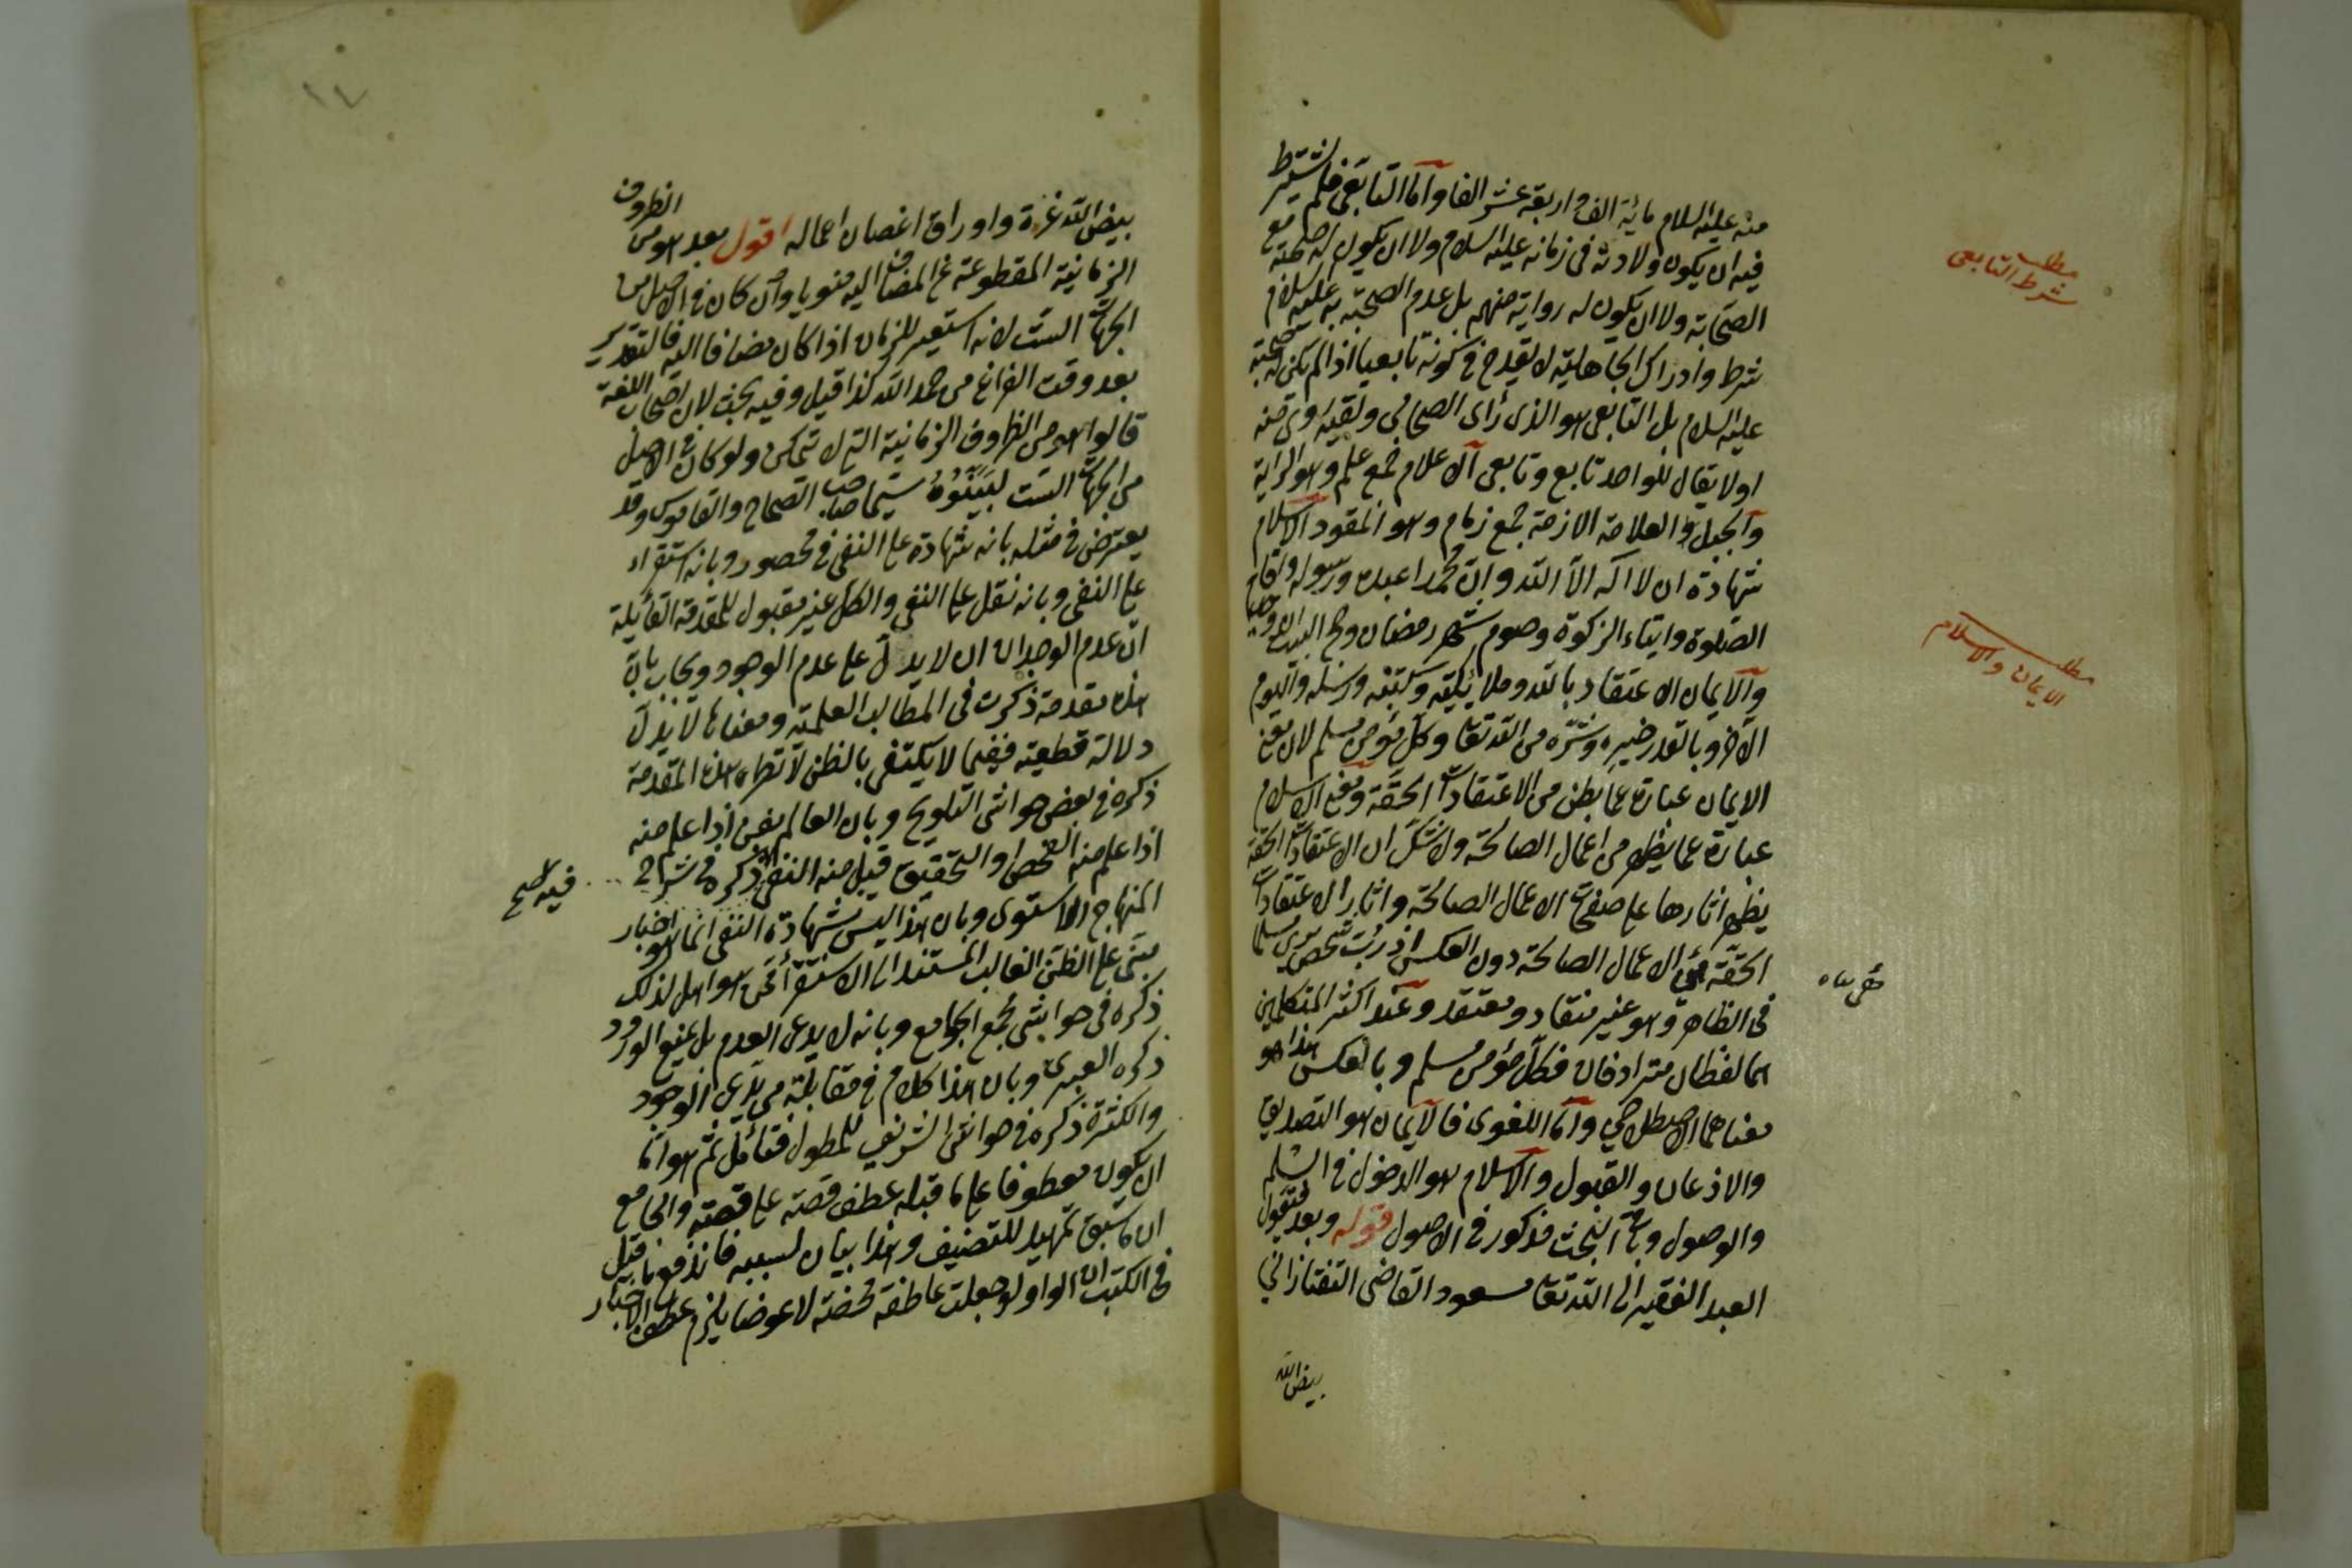 منه عليه السلام مائة الف واربعة عشر الفا وآما التابعى فلم يشترط
فيه ان يكون ولادته فى زمانه عليه السلام ولا ان يكون له صحبة مع
الصحابة ولا ان يكون له رواية منهم بل عدم الصحبة به عليه السلام
شرط وادراك الجاهلية لا يقدح فى كونه تابعيا اذا لم يكن له صحبة
عليه السلام بل التابعى هو الذى رأى الصحابى ولقيه وروى منه
اولا يقال للواحد تابع وتابعى آلاعلام جمع علم وهو الراية
وآلجبل والعلامة الازمة جمع زمام وهو المقود الاسلام
شهادة ان لا اله الا الله وان محمدا عبده ورسوله واقام
الصلوة وايتاء الزكوة وصوم شهر رمضان وحج البيت
وآلايمان الاعتقاد بالله وملائكته وكتبه ورسله واليوم
الآخر وبالقدر خيره وشره من الله تعا وكل مؤمن مسلم لان معنى
الايمان عبارة عما بطن من الاعتقادات الحقة ومعنى الاسلام
عبارة عما يظهر من اعمال الصالحة ولا شك ان الاعتقادات الحقة
يظهر اثارها على صفحات الاعمال الصالحة واثار الاعتقادات
الحقة هى الاعمال الصالحة دون العكس اذ رب شخص يرى مسلما
فى الظاهر وهو غير منقاد ومعتقد وعند اكثر المتكلمين
هما لفظان مترادفان فكل مؤمن مسلم وبالعكس هذا هو
معناهما الاصطلاحى وآما اللغوى فالآيمان هو التصديق
والاذعان والقبول وآلاسلام هو الدخول فى السلم
والوصول وباقى البحث مذكور فى الاصول قوله وبعد فيقول
العبد الفقير الى الله تعا مسعود القاضى التفتازانى
بيض الله
مطلب
شرط التابعى
مطلب
الايمان والاسلام
بيض الله غرة واوراق اغصان اعماله اقول بعد هو من الظروف
الزمانية المقطوعة عن المضاف اليه منويا وان كان فى الاصل من
الجهات الست لانه استعير للزمان اذا كان مضافا اليه فالتقدير
بعد وقت الفراغ من حمد الله كذا قيل وفيه بحث لان اصحاب اللغة
قالوا هو من الظروف الزمانية التى لا تتمكن ولو كان فى الاصل
من الجهات الست لبينوه سيما صاحب الصحاح والقاموس وقد
يعترض فى مثله بانه شهادة على النفى فى محصور وبانه استقراء
على النفى وبانه نقل على النفى والكل غير مقبول للمقدمة القائلة
ان عدم الوجدان ان لا يدل على عدم الوجود ويجاب بان
هذه مقدمة ذكرت فى المطالب العلمية ومعناها لا يدل
دلالة قطعية ففيما لا يكتفى بالظن لا تطرء هذه المقدمة
ذكره فى بعض حواشى التلويح وبان العالم بفن اذا علم منه
اذا علم منه الفحص والتحقيق قبل منه النفى ذكره فى شرح
المنهاج الاستوى وبان هذا ليس شهادة النفى انما هو اخبار
مبنى على الظن الغالب المستند الى الاستقراء ممن هو اهل لذلك
ذكره فى حواشى جمع الجوامع وبانه لا يدعى العدم بل يمنع الورود
ذكره العبرى وبان هذا كلام فى مقابلة من يدعى الوجود
والكثرة ذكره فى حواشى الشريف للمطول فتأمل ثم هو اما
ان يكون معطوفا على ما قبله عطف قصة على قصة والجامع
ان ما سبق تمهيد للتصنيف وهذا بيان لسببه فاندفع ما قيل
فى الكتب ان الواو لو جعلت عاطفة محضة لا عوضا يلزم عطف الاخبار